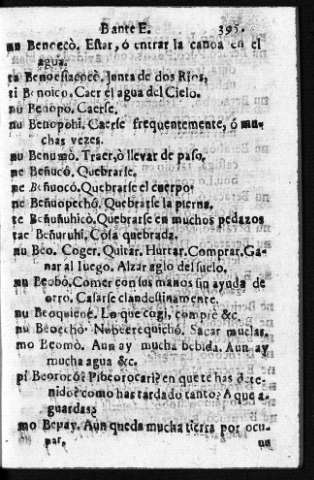 B ante E. 395.
nu Benoecò. Estar, ó entrar la canoa en el
agua.
ta Benoesiaenéè. Junta de dos Rios,
ti Benoico. Caer el agua del Cielo.
nu Benopo. Caerse.
nu Benopohi. Caerse frequentemente, ó mu-
chas vezes.
nu Benumò. Traer, ò llevar de paso,
ne Beñucò. Quebrarse.
ne Beñuocò. Quebrarse el cuerpo.
ne Beñuopechò. Quebrarse la pierna,
te Beñuñuhicò. Quebrarse en muchos pedazos
tae Beñuruhi. Cosa quebrada.
nu Beo. Coger. Quitar. Hurtar. Comprar. Ga-
nar al Iuego. Alzar aglo del suelo.
nu Beobò. Comer con sus manos sin ayuda de
otro. Casarse clandestinamente.
nu Beoquienè. Lo que cogi, compré &c.
nu Beoechò. Sacar muelas,
mo Beomò. Aun ay mucha bebida. Aun ay
mucha agua &c.
pi Beorocò? Pibeorocari? en que te has dete-
nido? como has tardado tanto? A que a-
guardas?
mo Bepay. Aun queda mucha tierra por ocu-
par. nu